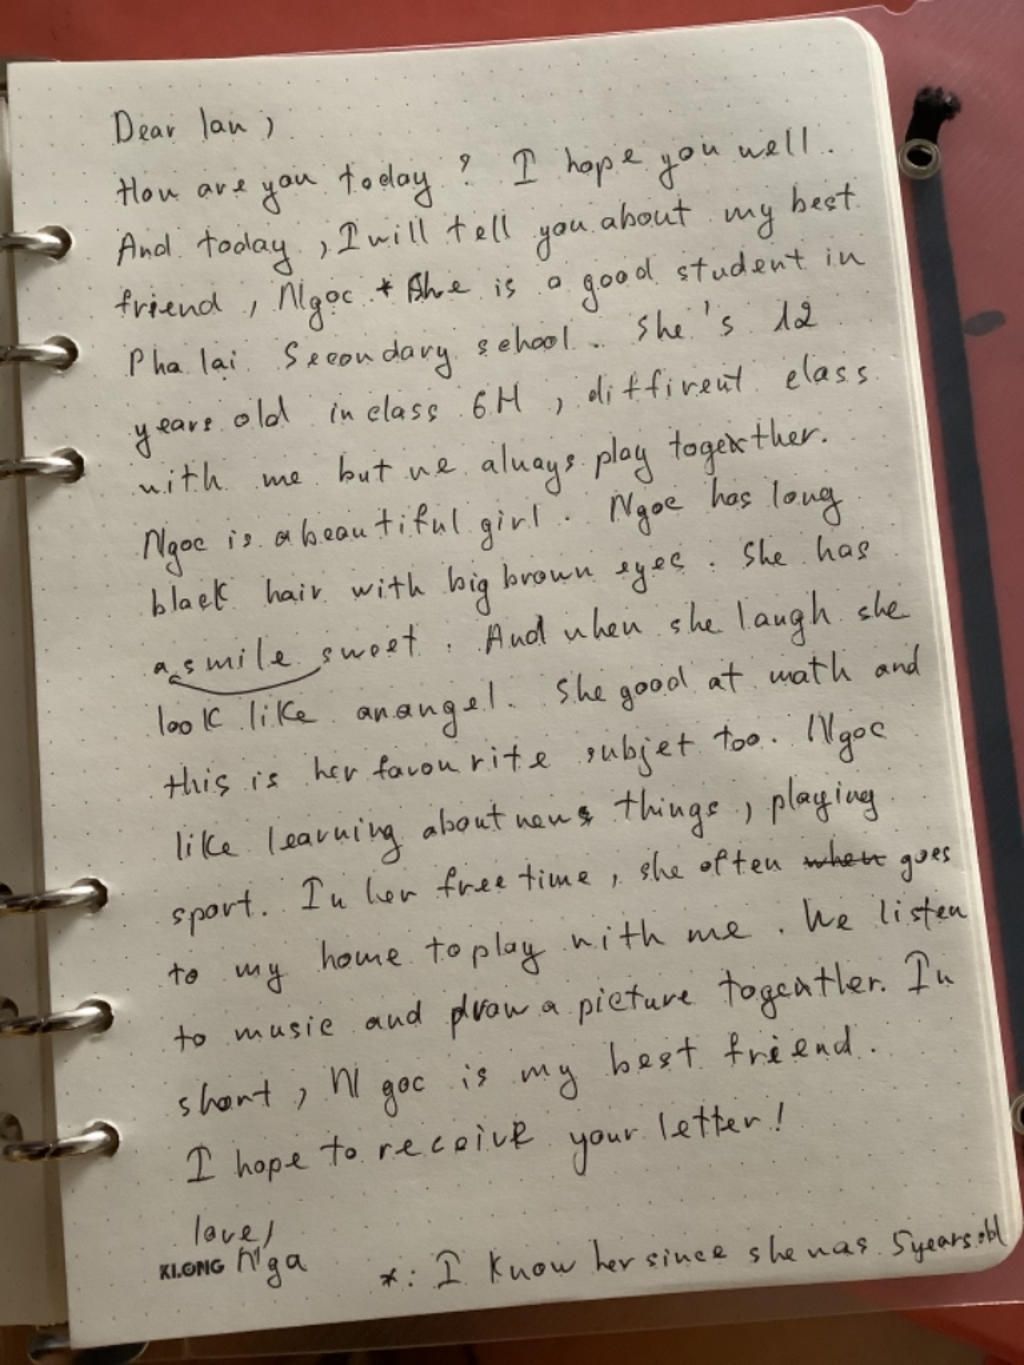 Dear Ian,
How are you today? I hope you well.
And today, I will tell you about my best
friend, Ngoc * She is a good student in
Pha lai Secondary school. She's 12
years old in class 6H, diffirent class
with me but we always play together.
Ngoc is a beautiful girl. Ngoc has long
black hair with big brown eyes. She has
a smile sweet. And when she laugh she
look like an angel. She good at math and
this is her favourite subjet too. Ngoc
like learning about news things, playing
sport. In her free time, she often when goes
to my home to play with me. We listen
to music and draw a picture together. In
short, Ngoc is my best friend.
I hope to receive your letter!
love,
KLONG Nga
*: I know her since she was 5 years old